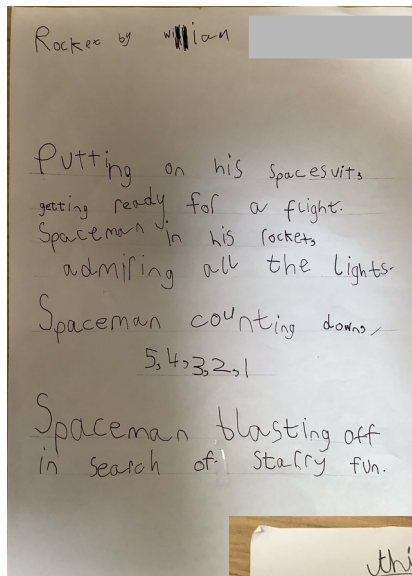 Rocket by William
Putting on his spacesuit,
getting ready for a flight.
Spaceman in his rocket,
admiring all the lights.
Spaceman counting down,
5, 4, 3, 2, 1
Spaceman blasting off
in search of starry fun.
thi